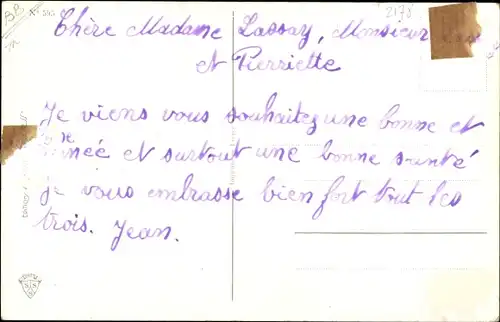 BB
N° 595
2178
Chère Madame Lassay, Monsieur
et Pierriette
Je viens vous souhaitez une bonne et
née et surtout une bonne santé
Je vous embrasse bien fort tout les
trois. Jean.